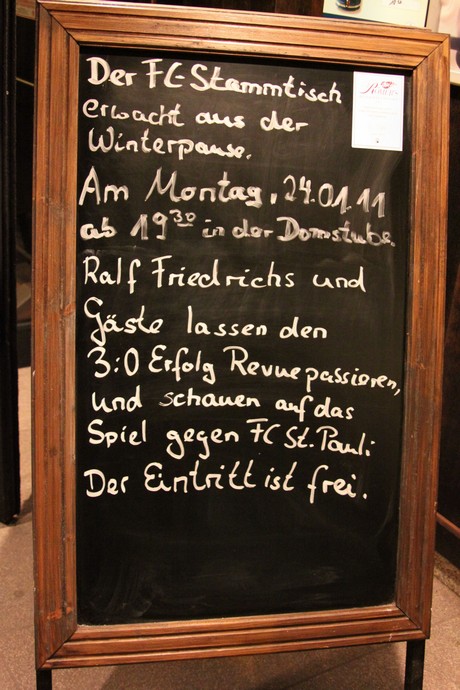 Der FC-Stammtisch
erwacht aus der
Winterpause.
Am Montag, 24.01.11
ab 19³⁰ in der Domstube.
Ralf Friedrichs und
Gäste lassen den
3:0 Erfolg Revue passieren,
und schauen auf das
Spiel gegen FC St. Pauli
Der Eintritt ist frei.